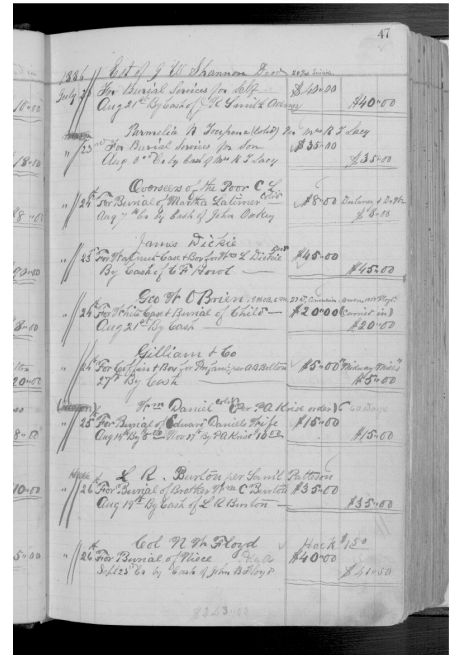 47
1886 Est of J W Shannon Decd
July For Burial Services for Self $40.00
Aug 21st By Cash of J W $40.00
Parmelia R (Cold) Mrs R T Lacy
" 23rd For Burial Services for Son $35.00
Aug By Cash of Mrs R T Lacy $35.00
Overseers of the Poor C L
" 24th For Burial of Martha Latimer Cold $8.00
Aug By Cash of John Oakey $8.00
James Dickie
" 23rd For Walnut Case & Box for Wm L Dickie $45.00
By Cash of C F $45.00
Geo W O'Brien
" 24th For White Case & Burial of Child $20.00
Aug 21st By Cash $20.00
Gilliam & Co
" 24th For Coffin & Box for Infant per A B Bolton $5.00
27th By Cash $5.00
Wm Daniel cold (Per P A Krise order)
" 25th For Burial of Edward Daniels Wife $15.00
Aug 14th By Nov 17th By P A Krise $15.00
L R. Burton per Saml Patteson
" 26th For Burial of Brother Wm C Burton $35.00
Aug 19th By Cash of L R Burton $35.00
Col N W Floyd Hack $1.50
" 26th For Burial of Niece $40.00
Sept 23rd By Cash of John B Floyd $41.50
$243.00
10.00
18.00
8.00
20.00
8.00
10.00
5.00